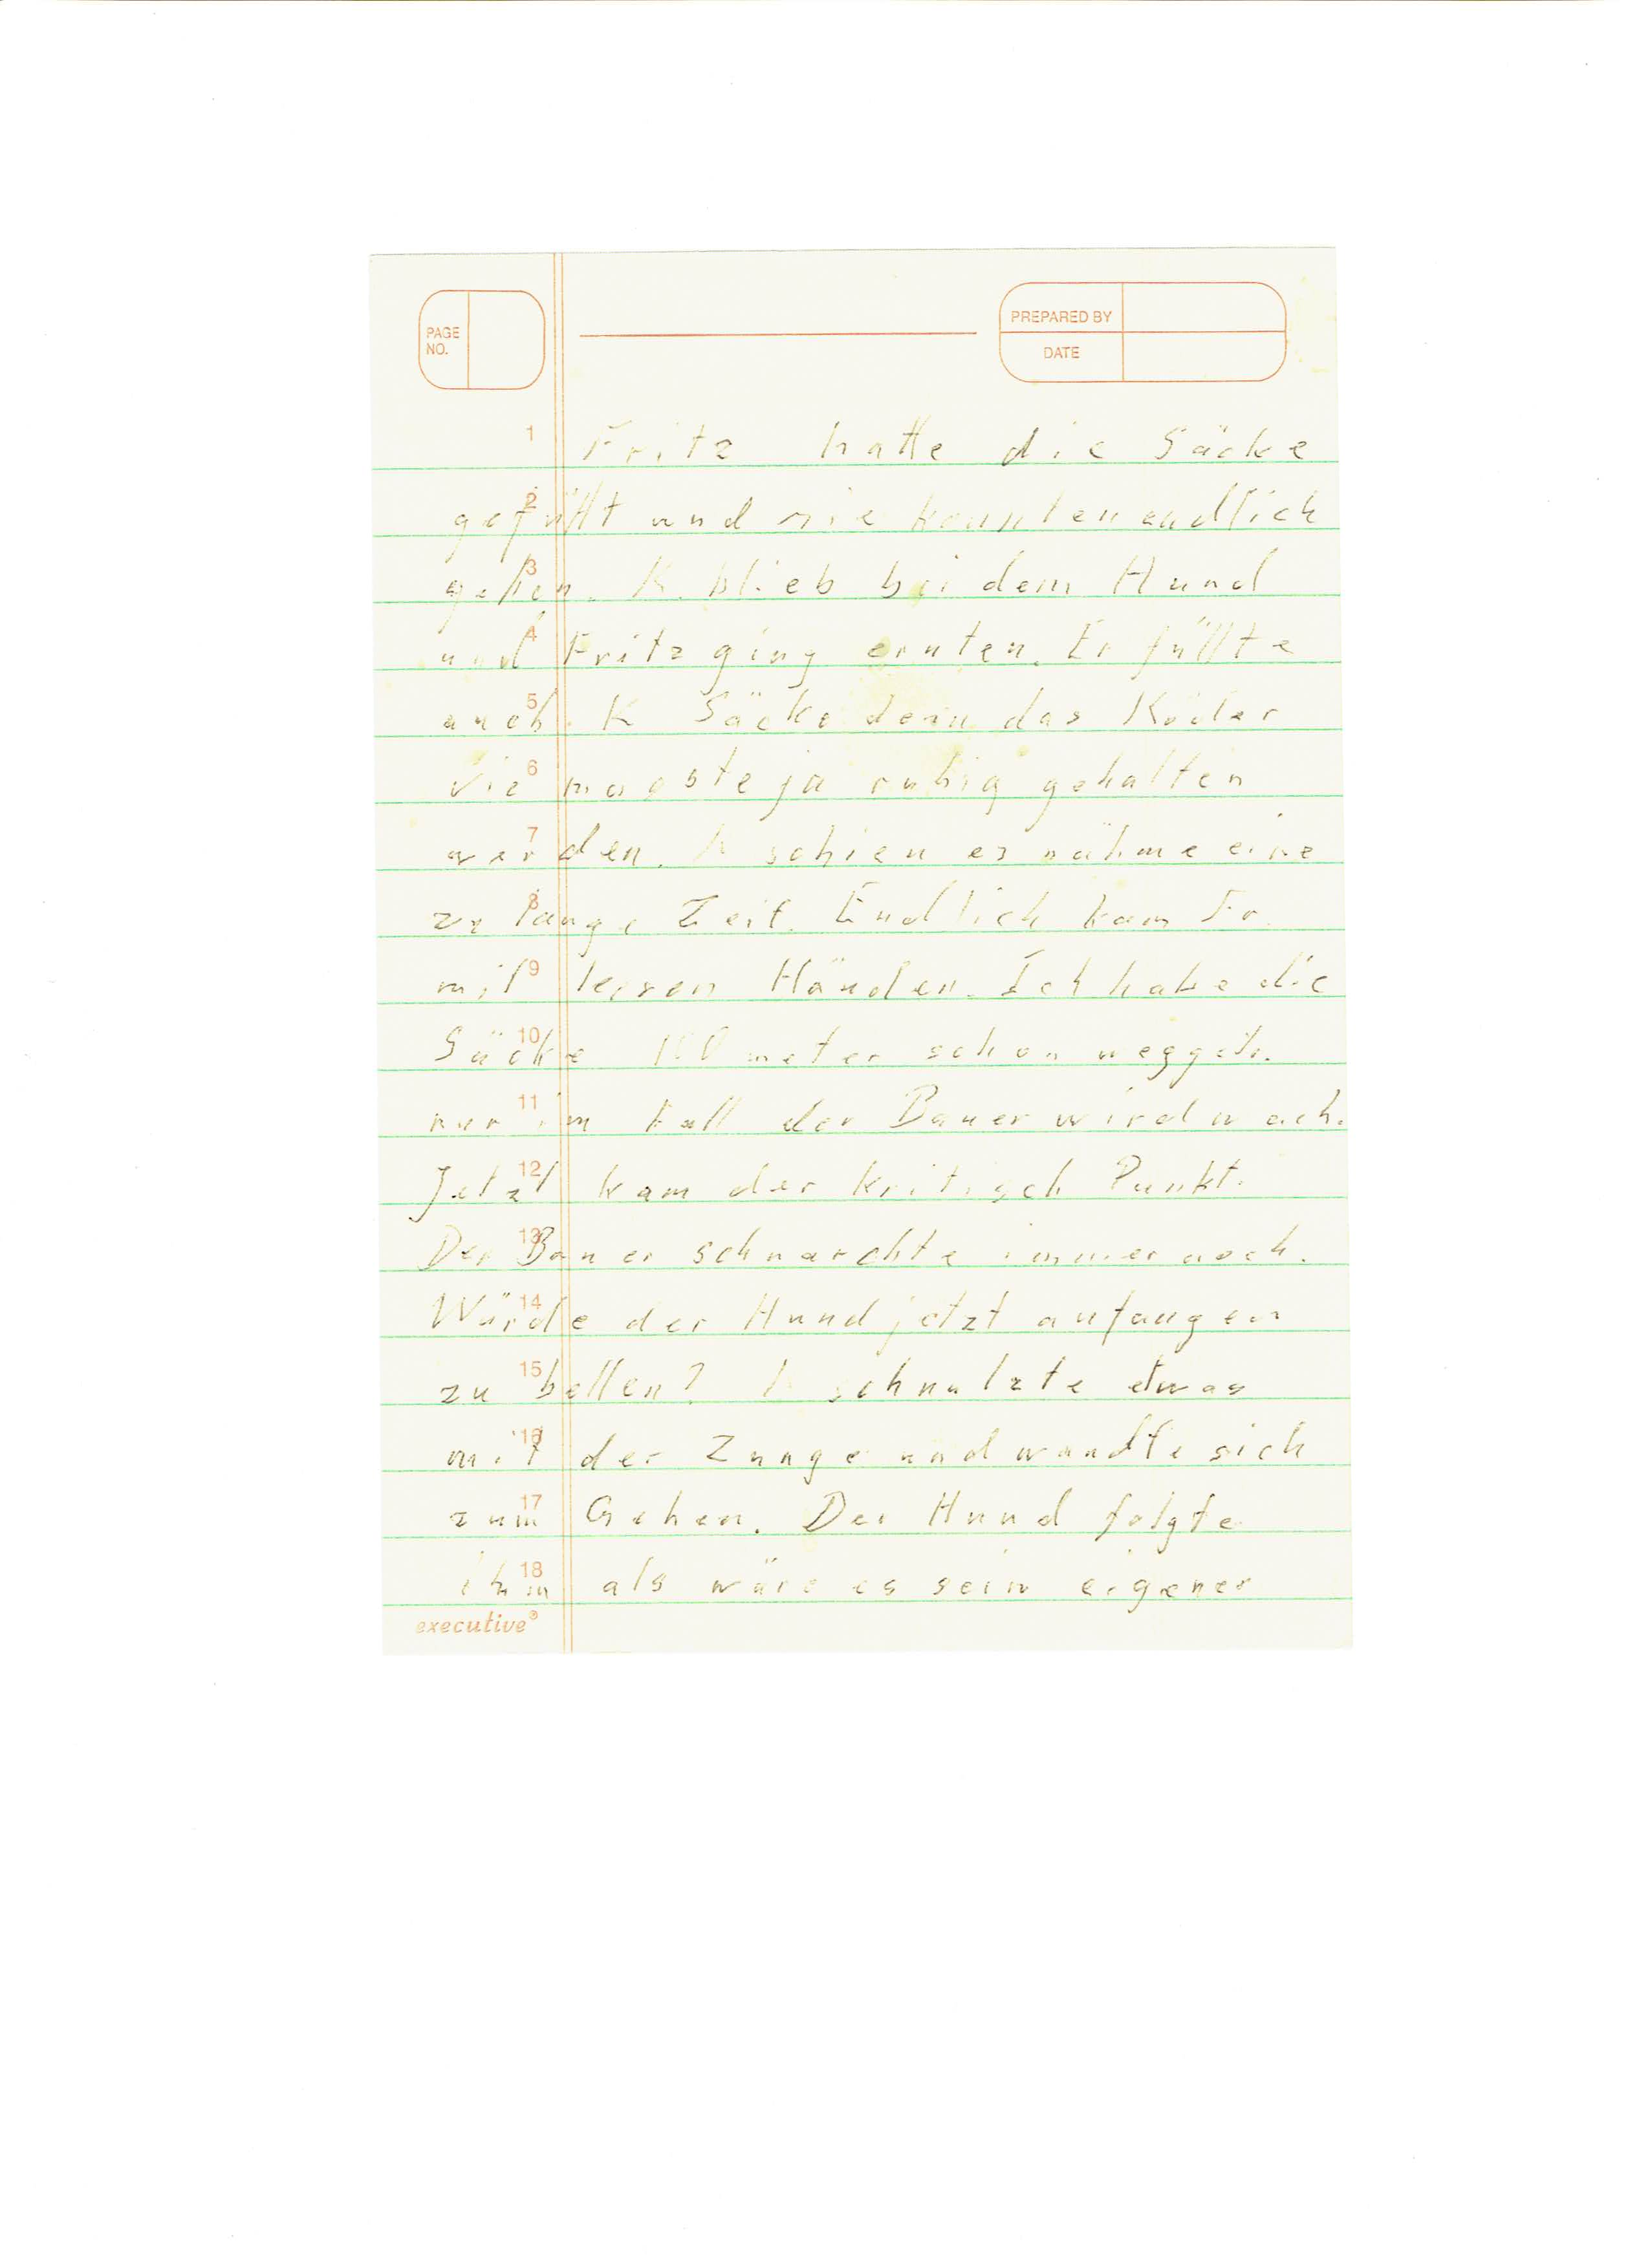 PAGE NO.
PREPARED BY
DATE
1 Fritz hatte die Säcke
2 gefüllt und sie konnten endlich
3 gehen. K. blieb bei dem Hund
4 und Fritz ging ernten. Er füllte
5 auch K Säcke denn das Köter
6 Vie musste ja ruhig gehalten
7 werden. K schien es nähme eine
8 zu lange Zeit. Endlich kam Fr.
9 mit leeren Händen. Ich habe die
10 Säcke 100 meter schon weggetr.
11 nur im Fall der Bauer wird wach.
12 Jetzt kam der kritisch Punkt.
13 Der Bauer schnarchte immer noch.
14 Würde der Hund jetzt anfangen
15 zu bellen? K schnalzte etwas
16 mit der Zunge und wandte sich
17 zum Gehen. Der Hund folgte
18 ihm als wäre es sein eigener
executive®